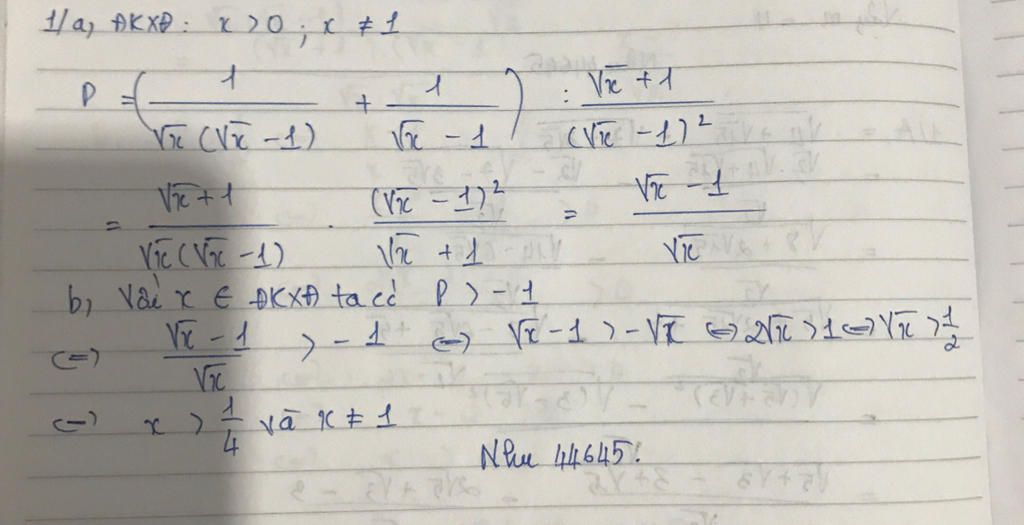 1/a, ĐKXĐ: x > 0 ; x ≠ 1
P = ( 1 / √x (√x - 1) + 1 / √x - 1 ) : √x + 1 / (√x - 1)²
= √x + 1 / √x (√x - 1) . (√x - 1)² / √x + 1 = √x - 1 / √x
b, Với x ∈ ĐKXĐ ta có P > -1
<=> √x - 1 / √x > - 1 <=> √x - 1 > - √x <=> 2√x > 1 <=> √x > 1/2
<=> x > 1/4 và x ≠ 1
Như 44645.